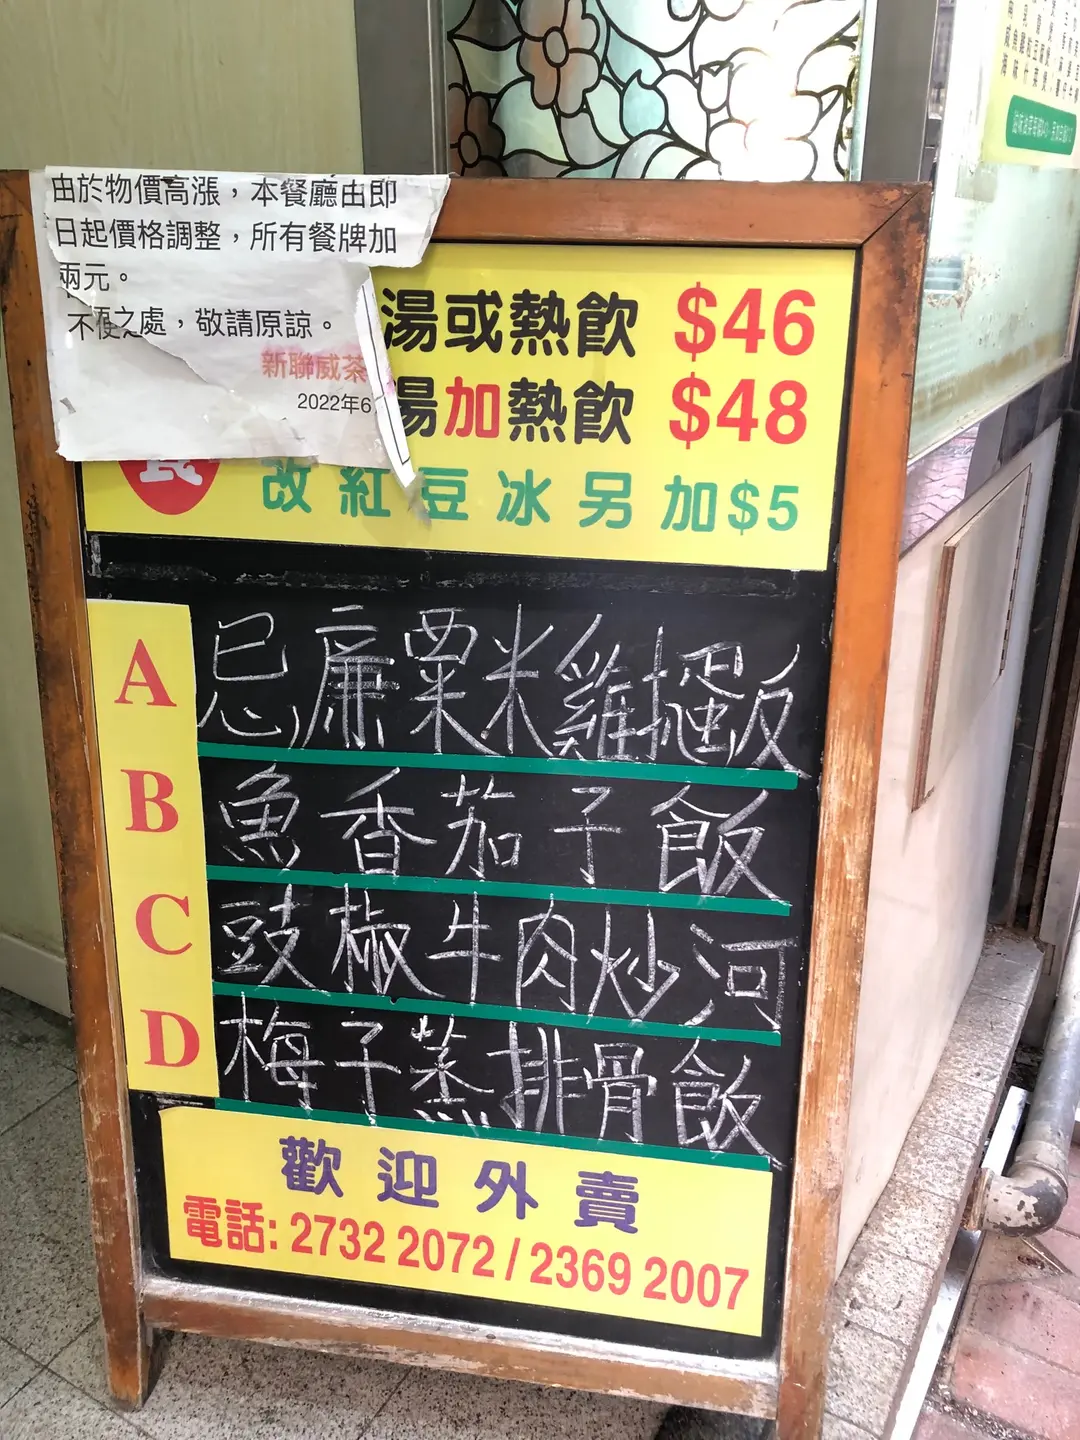 由於物價高漲，本餐廳由即
日起價格調整，所有餐牌加
兩元。
不便之處，敬請原諒。
新聯威茶
2022年6
湯或熱飲 $46
湯加熱飲 $48
食
改紅豆冰另加$5
A 忌廉粟米雞搵蛋飯
B 魚香茄子飯
C 豉椒牛肉炒河
D 梅子蒸排骨飯
歡迎外賣
電話: 2732 2072 / 2369 2007